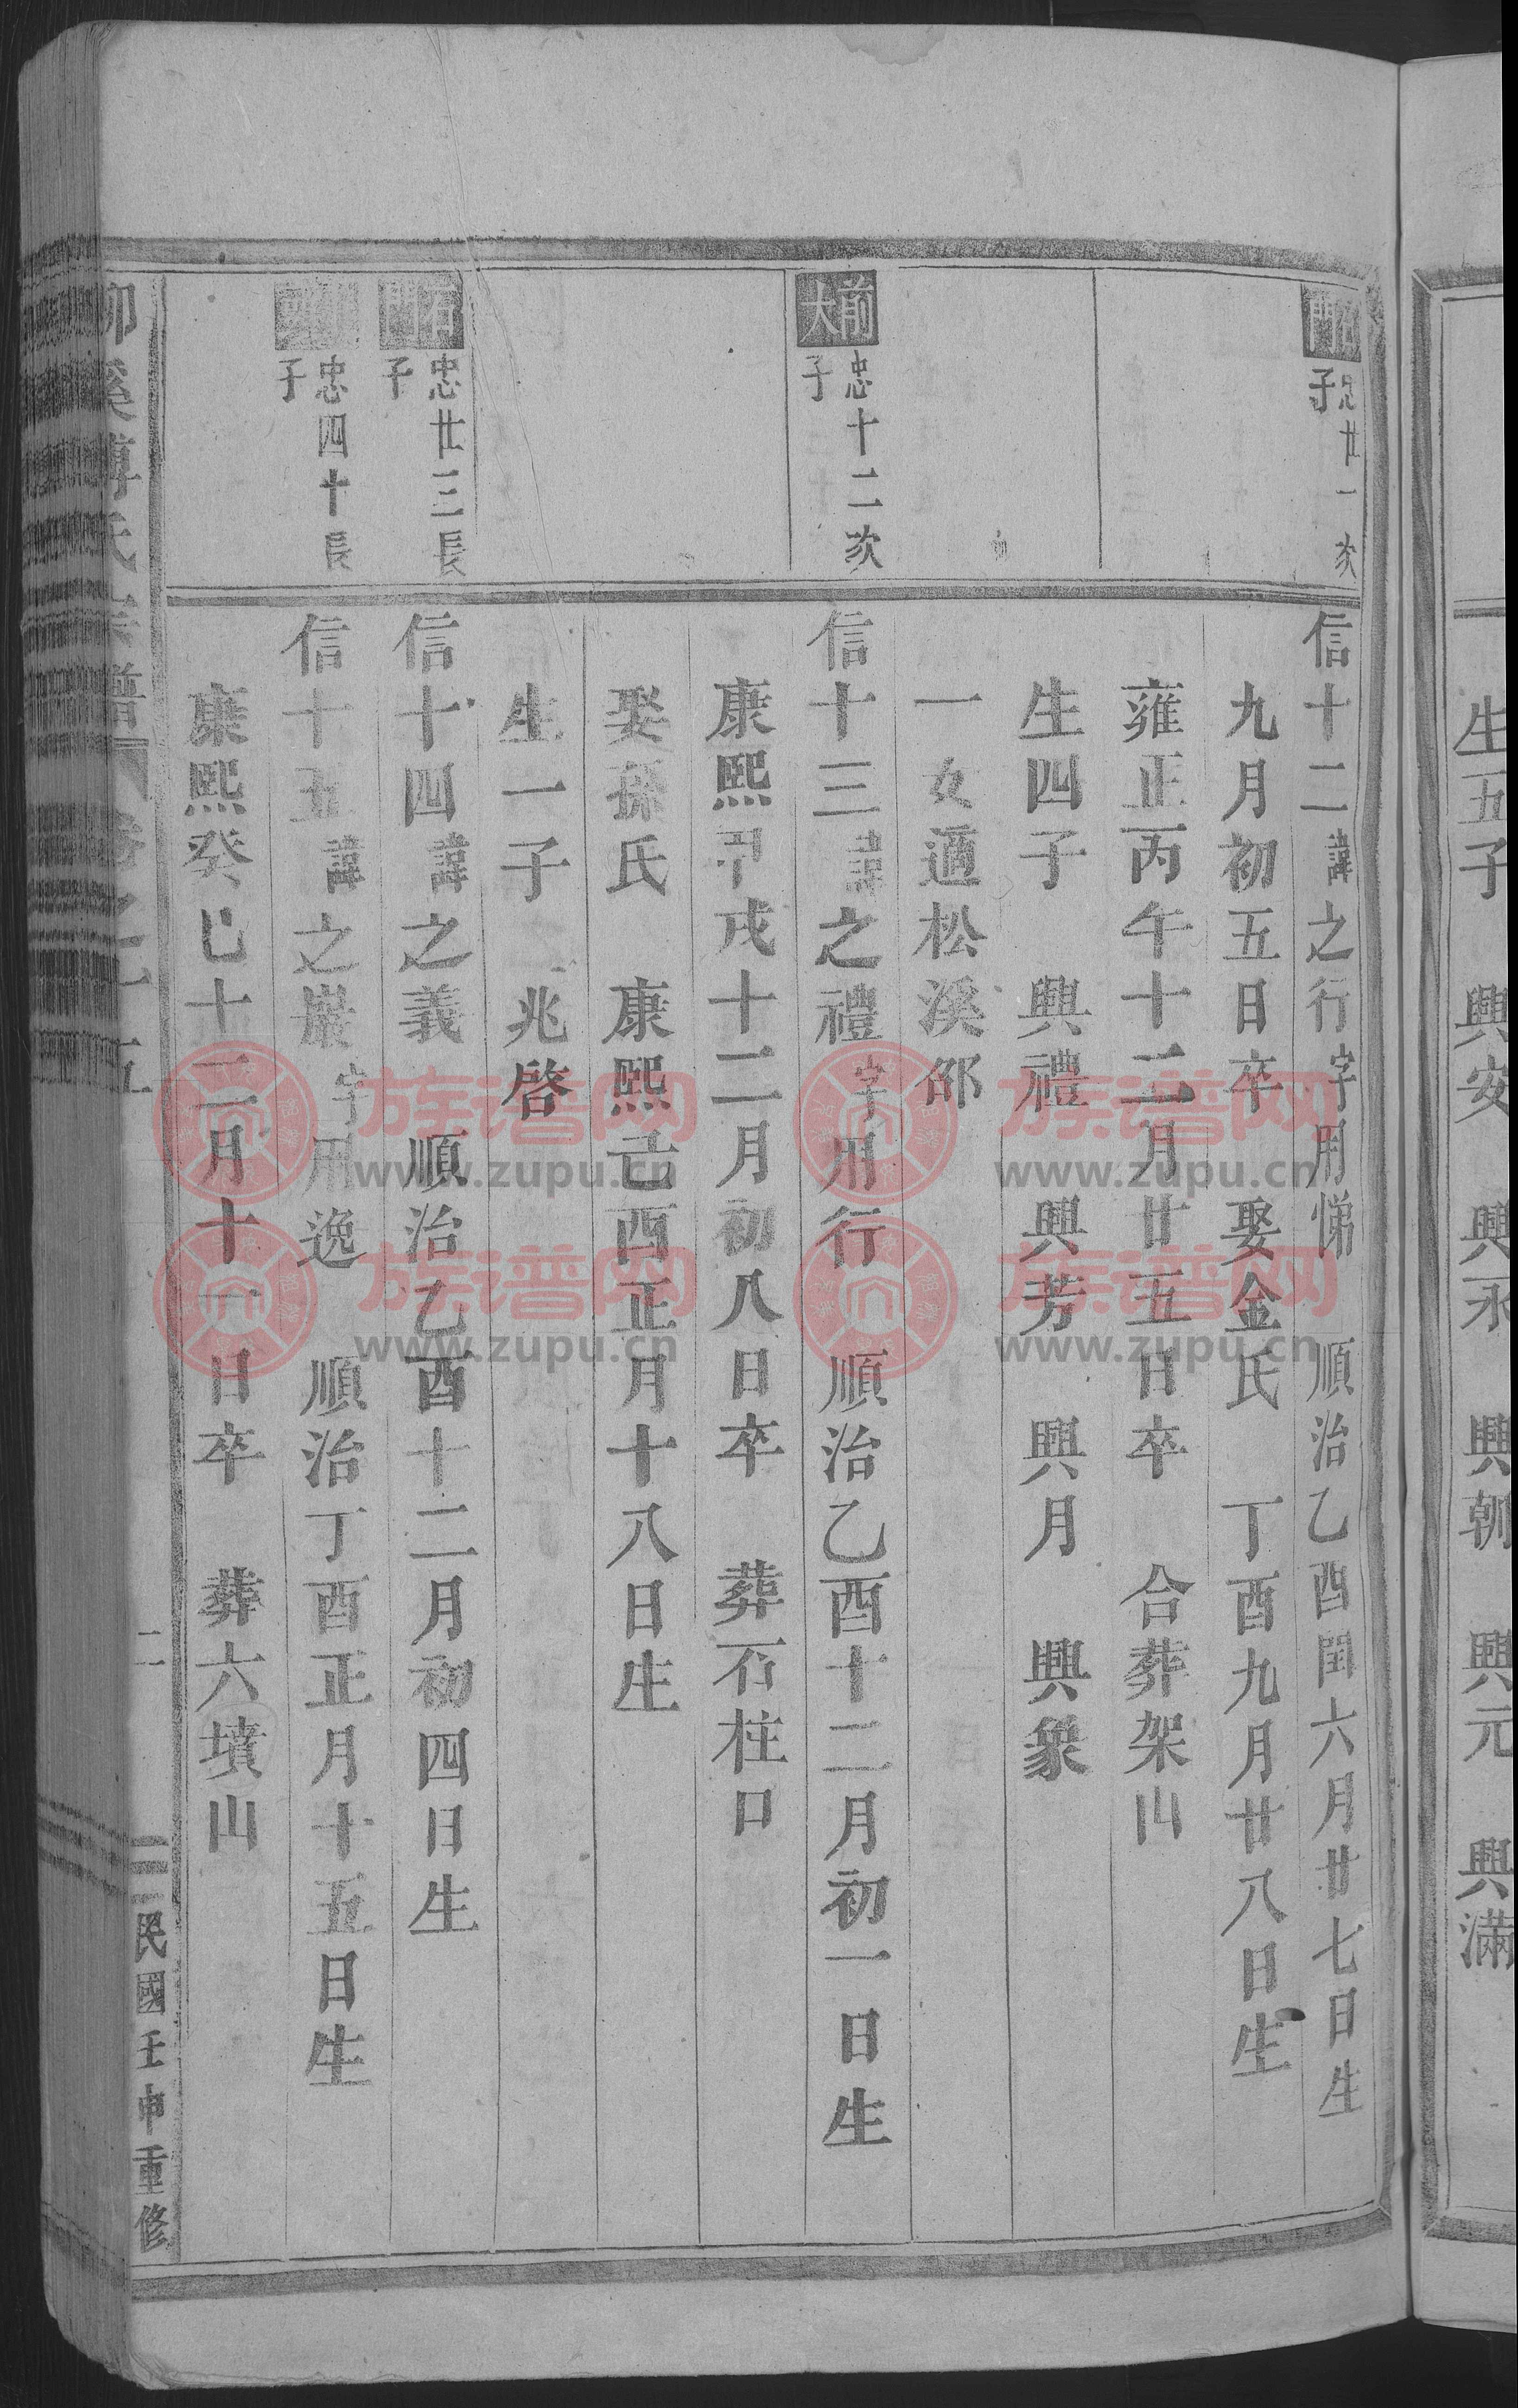 生五子　興安　興永　興朝　興元　興滿
門
子
忠廿一次
信十二諱之行字用悌　順治乙酉閏六月廿七日生
九月初五日卒　娶金氏　丁酉九月廿八日生
雍正丙午十二月廿五日卒　合葬架山
生四子　興禮　興芳　興月　興象
一女適松溪邵
前大
忠十二次
子
信十三諱之禮字用行　順治乙酉十二月初一日生
康熙甲戌十二月初八日卒　葬石柱口
娶孫氏　康熙己酉正月十八日生
生一子　兆啓
忠廿三長
子
信十四諱之義　順治乙酉十二月初四日生
忠四十長
子
信十五諱之巖字用逸　順治丁酉正月十五日生
康熙癸巳十二月十一日卒　葬六墳山
柳溪傅氏宗譜　卷之　五　二　民國壬申重修
族谱网
www.zupu.cn
族谱网
www.zupu.cn
族谱网
www.zupu.cn
族谱网
www.zupu.cn